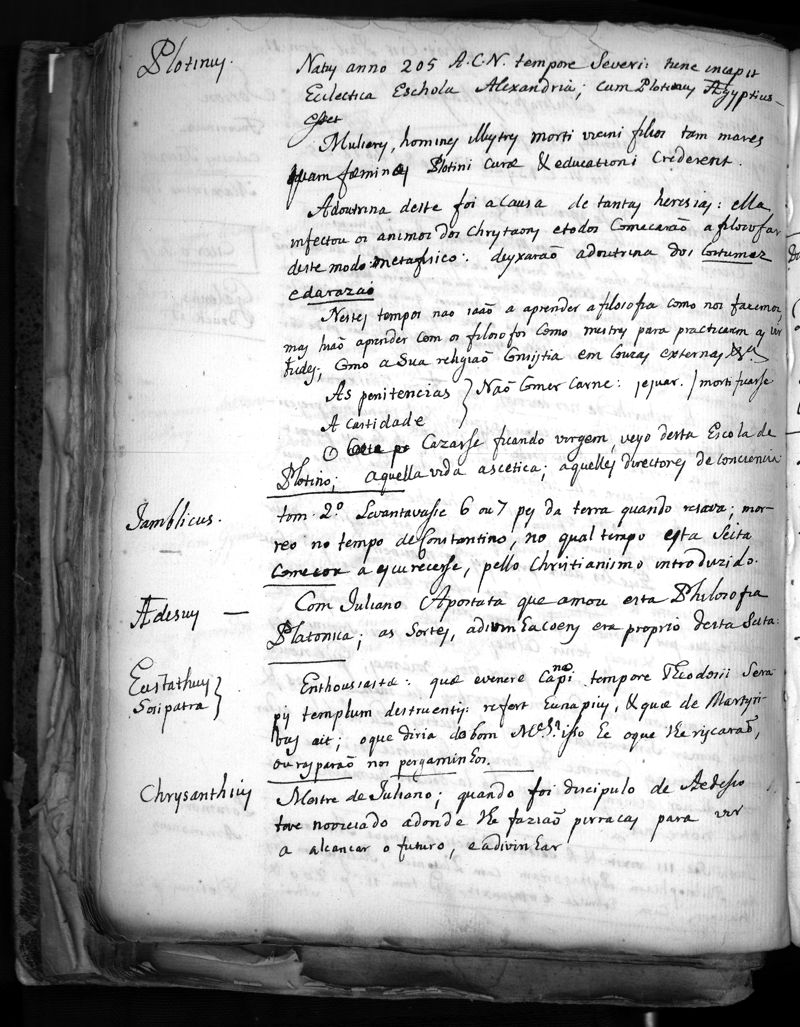 Plotinus.
Natus anno 205 A.C.N. tempore Severi: tunc incapit
Eclectica Eschola Alexandria; cum Plotinus Ægyptius
esset
Mulieres, homines illustres morti vicini filios tam mares
quam fæminas Plotini curæ & educationi crederent.
A doutrina deste foi a causa de tantas heresias: ella
infectou os animos dos Chrystaons e todos comecaraõ a filosofar
deste modo metafisico: deyxaraõ a doutrina dos Costumes
e da razaõ
Nestes tempos naõ iaaõ a aprender a filosofia como nos fazemos,
mas hiaõ aprender com os filosofos como mestres para practicarem as vir
tudes; como a sua religiaõ consistia em couzas externas &ca
As penitencias } Naõ comer carne: jejuar. / mortificarse
A castidade
O Cazarse ficando virgem, veyo desta Escola de
Plotino; aquella vida ascetica; aquelles directores de conciencia
Jamblicus.
tom. 2.º Levantavasse 6 ou 7 pes da terra quando resava; mor-
reo no tempo de Constantino, no qual tempo esta Seita
comecou a escurecerse, pello Christianismo introduzido.
Ædesius —
Com Juliano Apostata que amou esta Philosofia
Platonica; as Sortes, adivinhacoens era proprio desta Seita:
Eustathius }
Sosipatra
Enthousiastæ: quæ evenere Capi.na tempore Theodosii Sera
pis templum destruentis: refert Eunapius, & quæ de Martyri-
bus ait; o que diria do bom isso he o que lhe riscaraõ,
ou rasparaõ nos pergaminhos.
Chrysanthius
Mestre de Juliano; quando foi discipulo de Aedesio
teve noviciado adonde lhe faziaõ pirracas para vir
a alcancar o futuro, e adivinhar